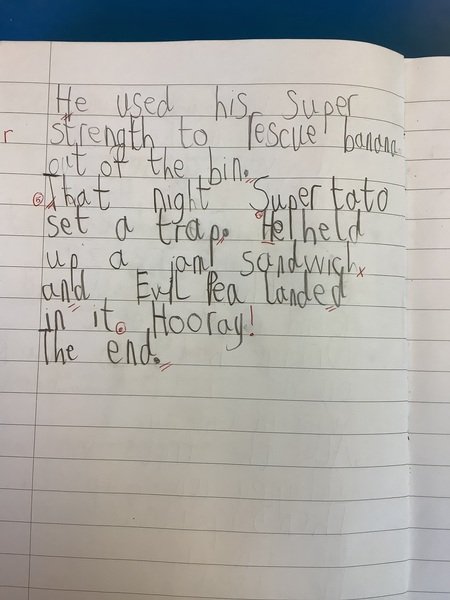 He used his Super
r strength to rescue banana
out of the bin.
That night Supertato
set a trap. He held
up a jam sandwich
and Evil Pea landed
in it. Hooray!
The end.